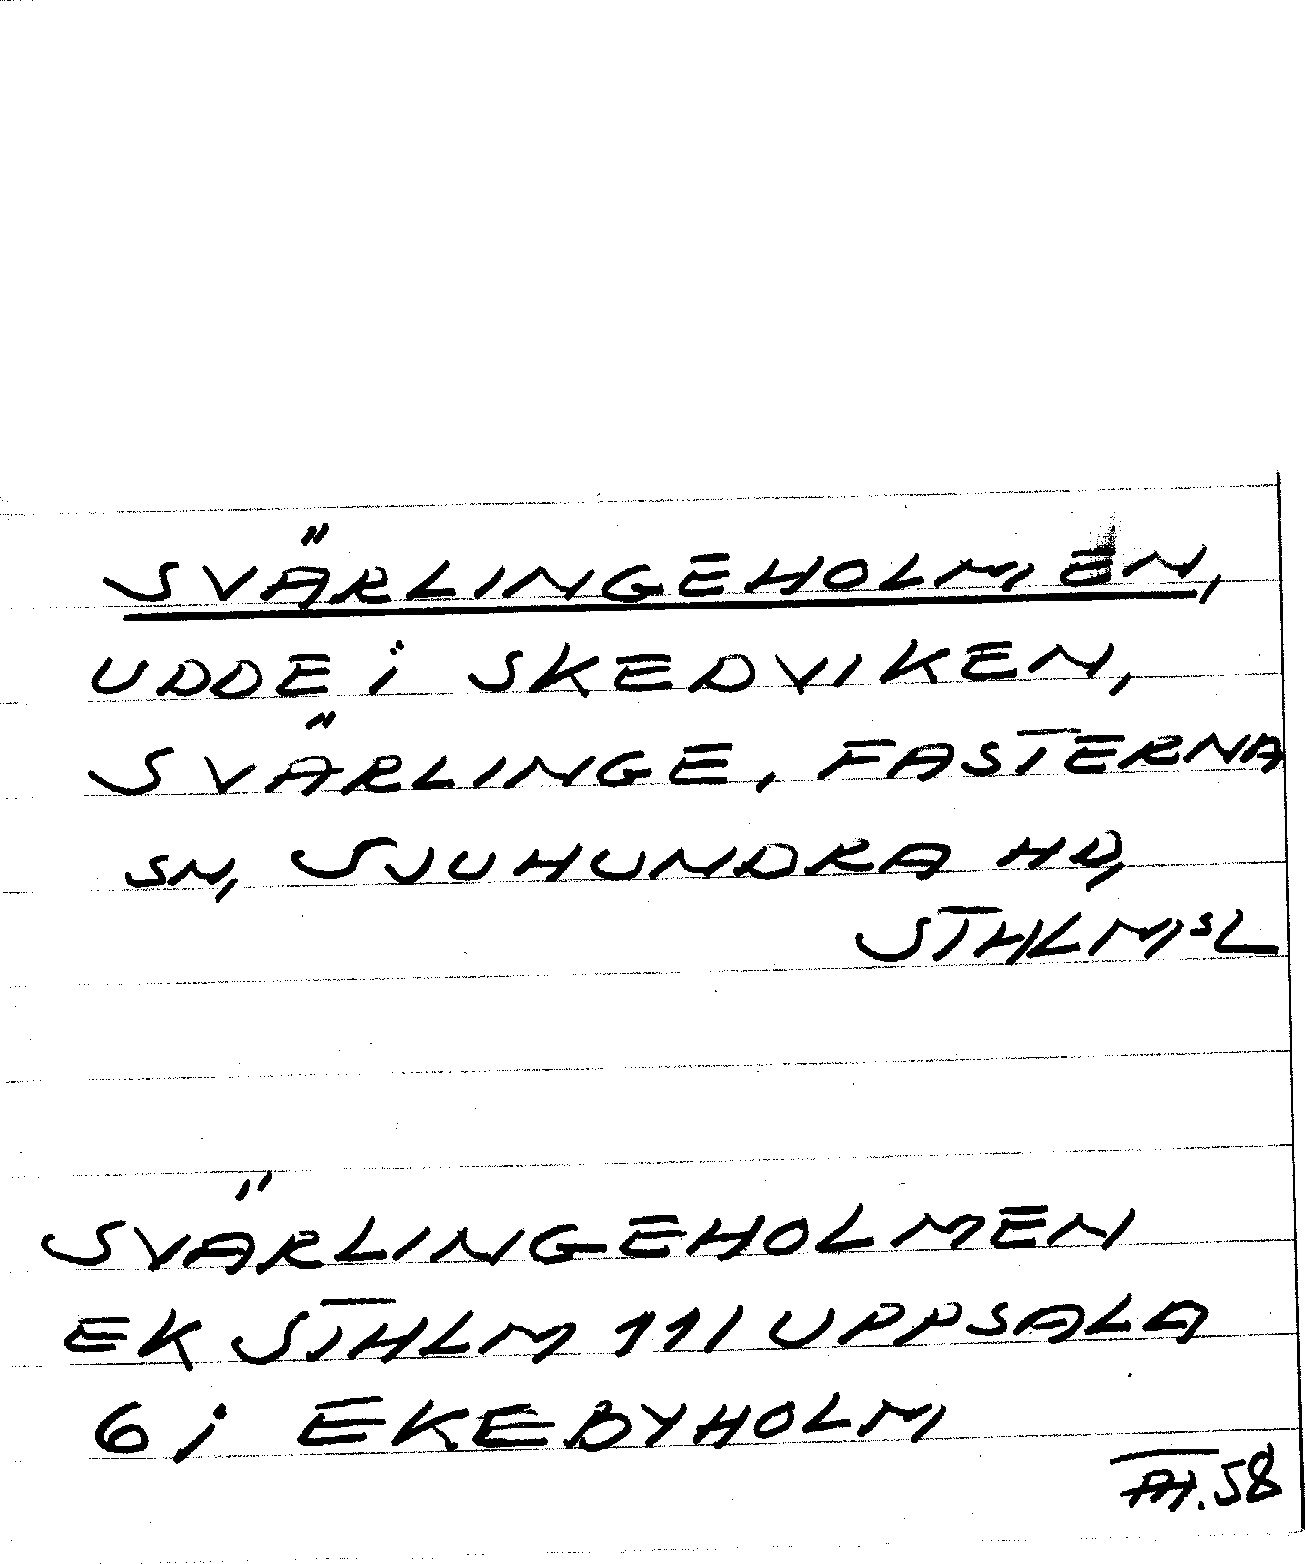 SVÄRLINGEHOLMEN,
UDDE i SKEDVIKEN,
SVÄRLINGE, FASTERNA
SN, SJUHUNDRA HD,
STHLMsL
SVÄRLINGEHOLMEN
EK STHLM 111 UPPSALA
6; EKEBYHOLM
.58